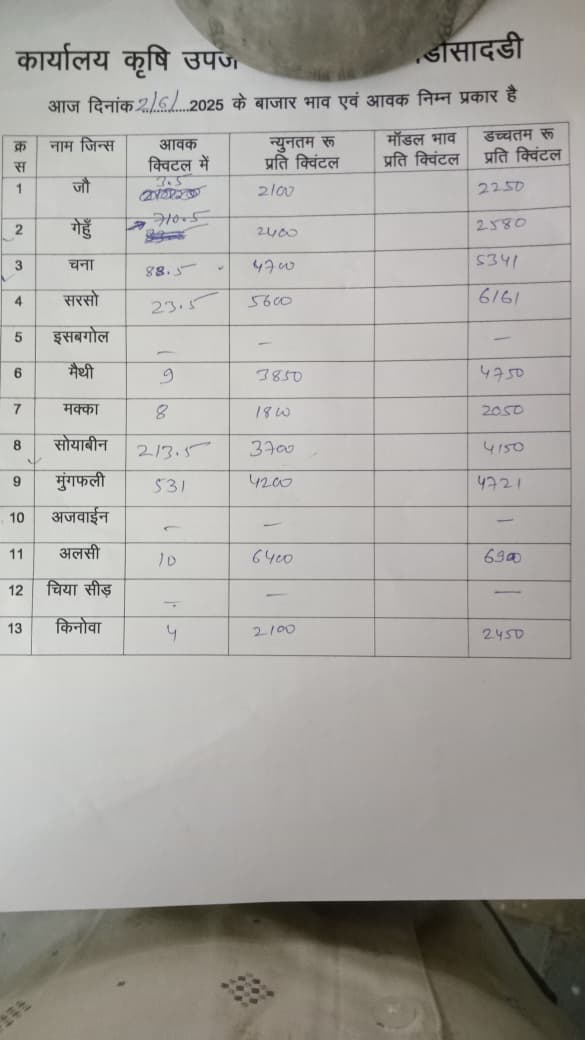 कार्यालय कृषि उपज
आज दिनांक 2/6/ 2025 के बाजार भाव एवं आवक निम्न प्रकार है
क्र स नाम जिन्स आवक क्विटल में न्युनतम रू प्रति क्विंटल मॉडल भाव प्रति क्विंटल उच्चतम रू प्रति क्विंटल
1 जौ 3.5 2100 2250
2 गेहुँ 710.5 2400 2580
3 चना 88.5 4700 5341
4 सरसो 23.5 5600 6161
5 इसबगोल — — —
6 मैथी 9 3850 4750
7 मक्का 8 1800 2050
8 सोयाबीन 213.5 3700 4150
9 मुंगफली 531 4200 4721
10 अजवाईन — — —
11 अलसी 10 6400 6900
12 चिया सीड़ — — —
13 किनोवा 4 2100 2450